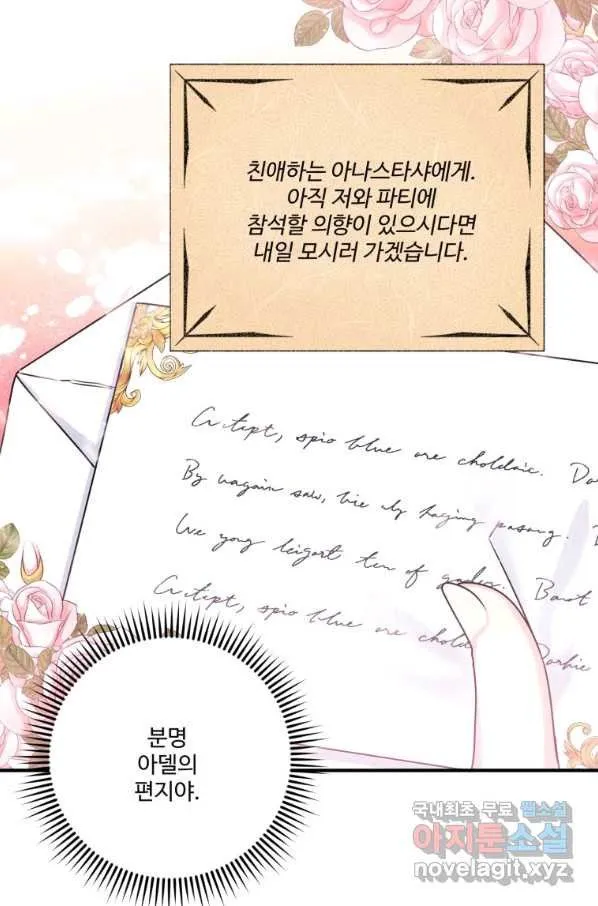 친애하는 아나스타샤에게.
아직 저와 파티에
참석할 의향이 있으시다면
내일 모시러 가겠습니다.
spio blue are choldaic.
By
saw,
ten of
spio blue are
분명
아델의
편지야.
국내최초 무료 웹소설
아지툰소설
novelagit.xyz